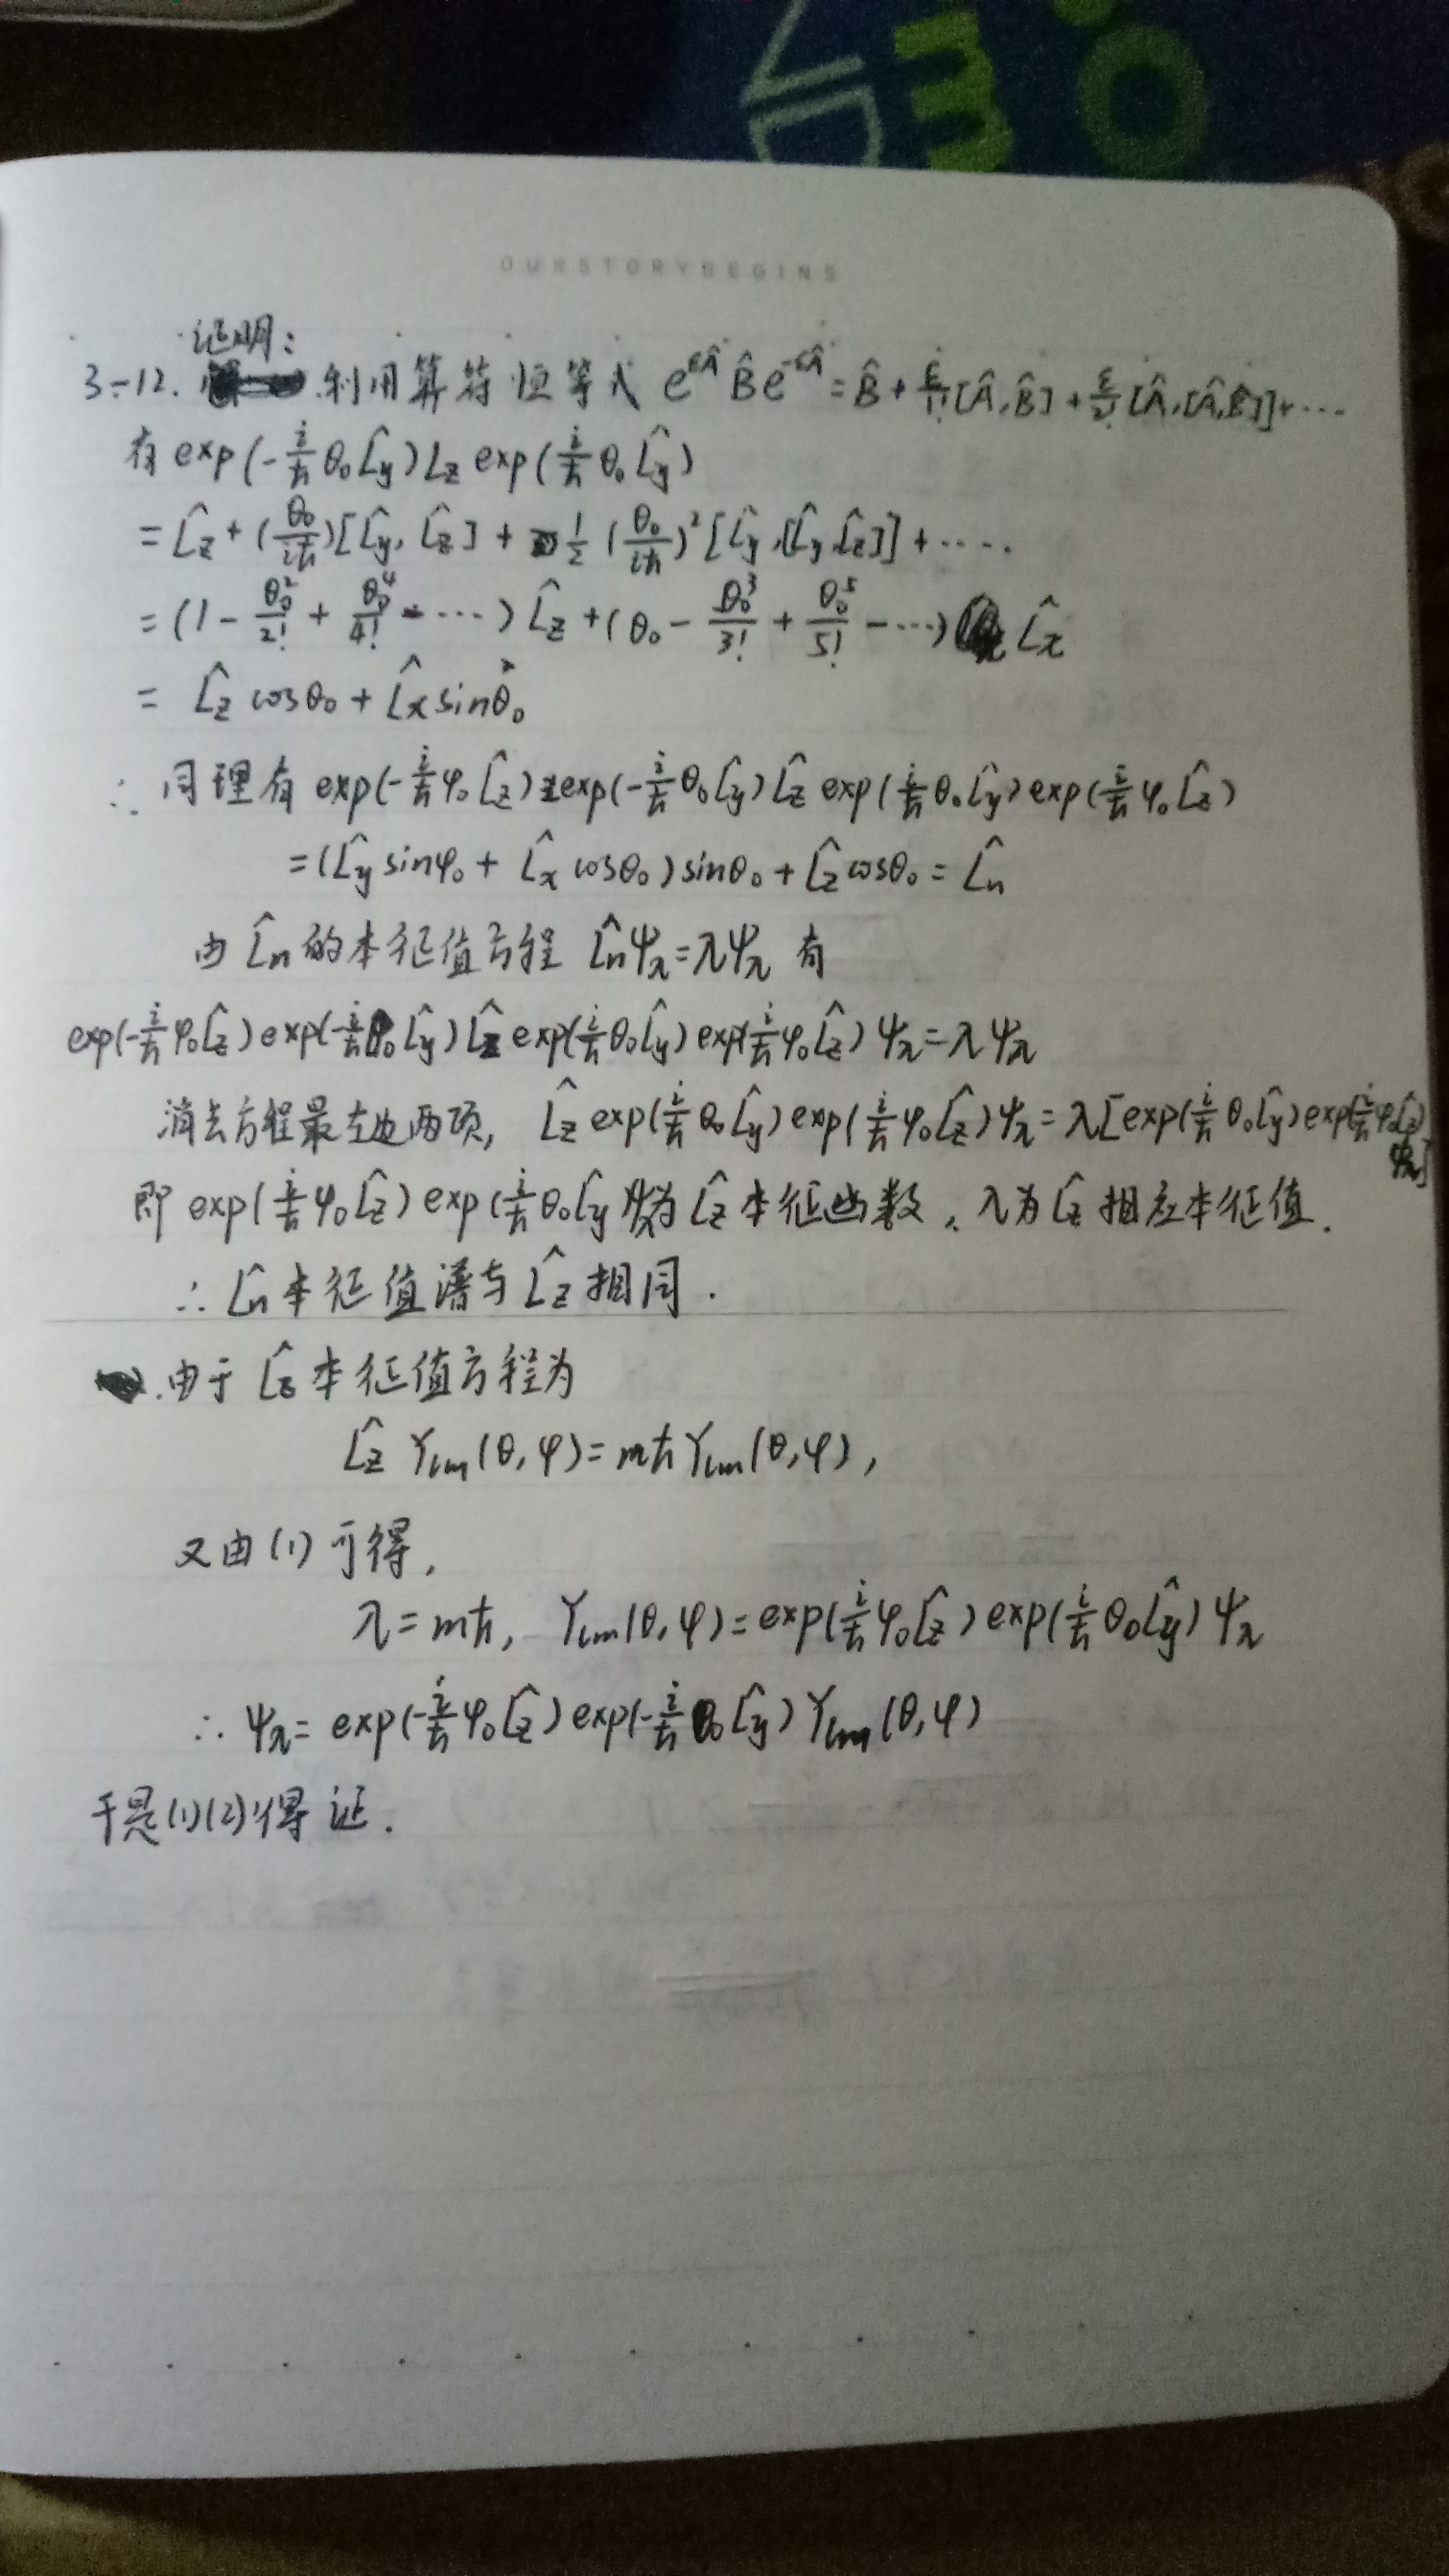 OURSTORYBEGINS
证明:
3-12. 利用算符恒等式 e^{εÂ} B̂ e^{-εÂ} = B̂ + ε/1! [Â, B̂] + ε/2! [Â, [Â, B̂]] + ...
有 exp(-i/ħ θ₀ L̂y) Lz exp(i/ħ θ₀ L̂y)
= L̂z + (θ₀/iħ) [L̂y, L̂z] + 1/2 (θ₀/iħ)² [L̂y, [L̂y, L̂z]] + .....
= (1 - θ₀²/2! + θ₀⁴/4! - ...) L̂z + (θ₀ - θ₀³/3! + θ₀⁵/5! - ...) L̂x
= L̂z cosθ₀ + L̂x sinθ₀
∴ 同理有 exp(-i/ħ φ₀ L̂z) exp(-i/ħ θ₀ L̂y) L̂z exp(i/ħ θ₀ L̂y) exp(i/ħ φ₀ L̂z)
= (L̂y sinφ₀ + L̂x cosθ₀) sinθ₀ + L̂z cosθ₀ = L̂n
由 L̂n 的本征值方程 L̂n ψλ = λ ψλ 有
exp(-i/ħ φ₀ L̂z) exp(-i/ħ θ₀ L̂y) L̂z exp(i/ħ θ₀ L̂y) exp(i/ħ φ₀ L̂z) ψλ = λ ψλ
消去方程最左边两项, L̂z exp(i/ħ θ₀ L̂y) exp(i/ħ φ₀ L̂z) ψλ = λ [exp(i/ħ θ₀ L̂y) exp(i/ħ φ₀ L̂z) ψλ]
即 exp(i/ħ φ₀ L̂z) exp(i/ħ θ₀ L̂y) 为 L̂z 本征函数, λ 为 L̂z 相应本征值.
∴ L̂n 本征值谱与 L̂z 相同.
由于 L̂z 本征值方程为
L̂z Ylm(θ, φ) = mħ Ylm(θ, φ),
又由(1)可得,
λ = mħ, Ylm(θ, φ) = exp(i/ħ φ₀ L̂z) exp(i/ħ θ₀ L̂y) ψλ
∴ ψλ = exp(-i/ħ φ₀ L̂z) exp(-i/ħ θ₀ L̂y) Ylm(θ, φ)
于是(1)(2)得证.